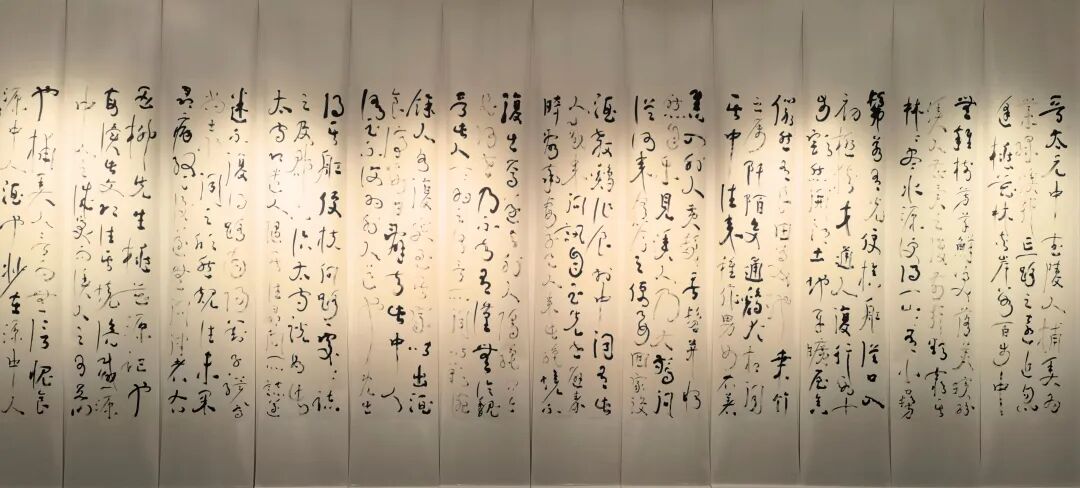 晉太元中武陵人捕魚為
業緣溪行忘路之遠近忽
逢桃花林夾岸數百步中
無雜樹芳草鮮美落英繽紛
漁人甚異之復前行欲窮其
林林盡水源便得一山山有小口髣
髴若有光便捨船從口入
初極狹才通人復行數十
步豁然開朗土地平曠屋舍
儼然有良田美池桑竹
之屬阡陌交通雞犬相聞
其中往來種作男女衣著
悉如外人黃髮垂髫並怡
然自樂見漁人乃大驚問
從何來具答之便要還家設
酒殺雞作食村中聞有此
人咸來問訊自云先世避秦
時亂率妻子邑人來此絕境不
復出焉遂與外人間隔問今
是何世乃不知有漢無論魏
晉此人一一為具言所聞皆歎惋
餘人各復延至其家皆出酒
食停數日辭去此中人
語云不足為外人道也既出
得其船便扶向路處處誌
之及郡下詣太守說如此
太守即遣人隨其往尋向所誌遂
迷不復得路南陽劉子驥高
尚士也聞之欣然規往未果
尋病終後遂無問津者右
五柳先生桃花源記也
每讀此文想往其境源
中人之誠實而漁人之
也捕魚人
源中人酒也在源中人